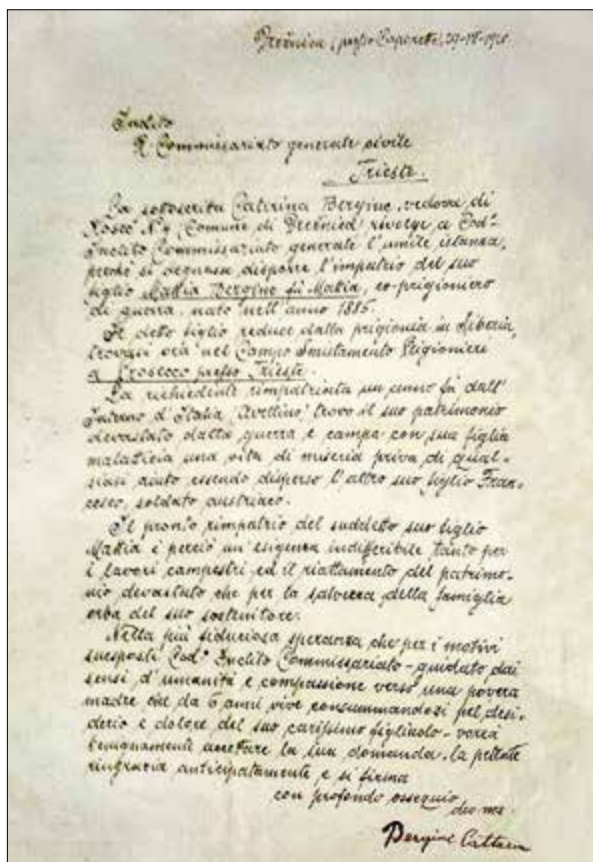 Drežnica (presso Caporetto),
Inclito
R. Commissariato generale civile
Trieste.
La sottoscritta Caterina Bergine, vedova di
N° 4 Comune di rivolge a Cod°
Inclito Commissariato generale l'umile istanza,
perchè si degnasse disporre l'impatrio del suo
figlio Mattia Bergine fu Mattia, ex-prigioniero
di guerra, nato nell'anno 1885.
Il detto figlio reduce dalla prigionia in Siberia,
trovasi ora nel Campo Smistamento Prigionieri
a Prosecco presso Trieste.
La richiedente rimpatriata un anno fa dall'
Interno d'Italia (Avellino) trovò il suo patrimonio
devastato dalla guerra e campa con sua figlia
malaticcia una vita di miseria priva di qual-
siasi aiuto essendo disperso l'altro suo figlio Fran-
cesco, soldato austriaco.
Il pronto rimpatrio del suddetto suo figlio
Mattia è perciò un'esigenza indifferibile tanto per
i lavori campestri ed il riattamento del patrimo-
nio devastato che per la salvezza della famiglia
orba del suo sostenitore.
Nella più fiduciosa speranza che per i motivi
suesposti Cod° Inclito Commissariato - guidato dai
sensi d'umanità e compassione verso una povera
madre che da 6 anni vive consummandosi pel desi-
derio e dolore del suo carissimo figliuolo - vorrà
benignamente accettare la sua domanda, la petente
ringrazia anticipatamente e si firma
con profondo ossequio
Bergine